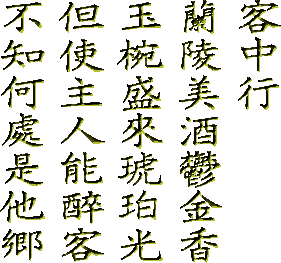 客中行
蘭陵美酒鬱金香
玉椀盛來琥珀光
但使主人能醉客
不知何處是他鄉